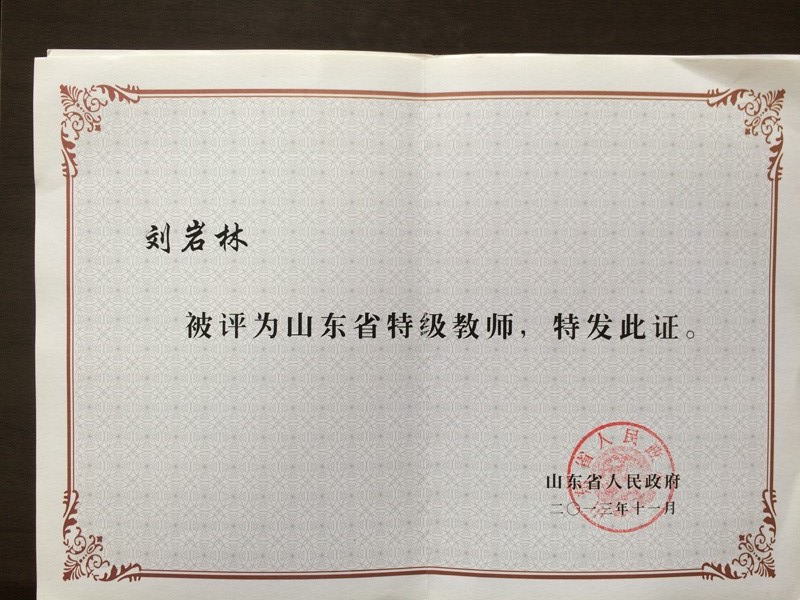 刘岩林
被评为山东省特级教师，特发此证。
山东省人民政府
二〇一三年十一月